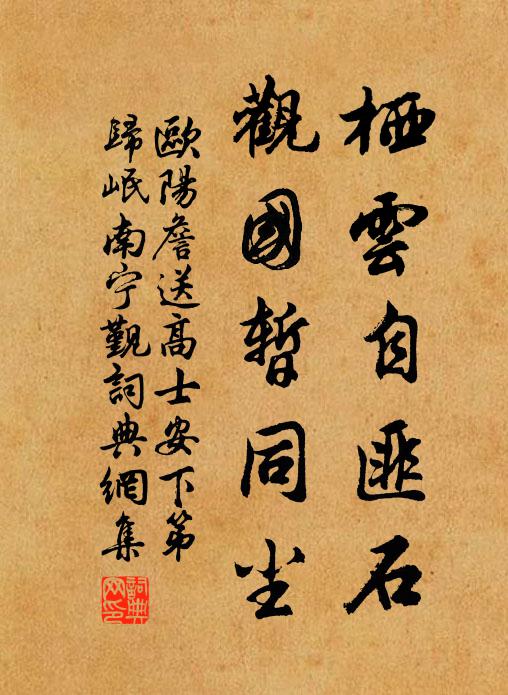 栖雲自匪石
觀國暫同尘
歐陽詹送高士安下第
歸岷南宁覲詞典網集
詞典网印